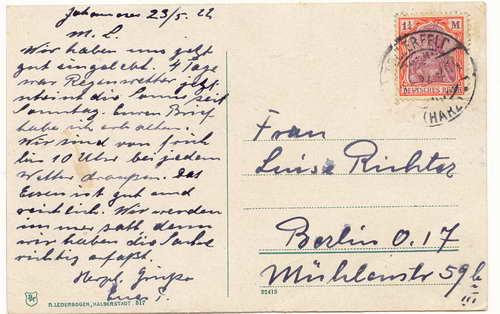 Johannes 23/5. 22
M. L.
Wir haben uns jetzt
gut eingelebt. 4 Tage
war Regenwetter jetzt
scheint die Sonne seit
Sonntag. Euren Brief
habe ich erhalten.
Wir sind von früh
bis 10 Uhr bei jedem
Wetter draußen. Das
Essen ist gut und
reichlich. Wir werden
immer satt denn
wir haben die Sache
richtig erfaßt.
Herzl. Grüße
Frau
Luise Richter
Berlin O.17
Mühlenstr 59b
III
1¼ M
DEUTSCHES REICH
(HARZ)
R. LEDERBOGEN, HALBERSTADT. 517
92419